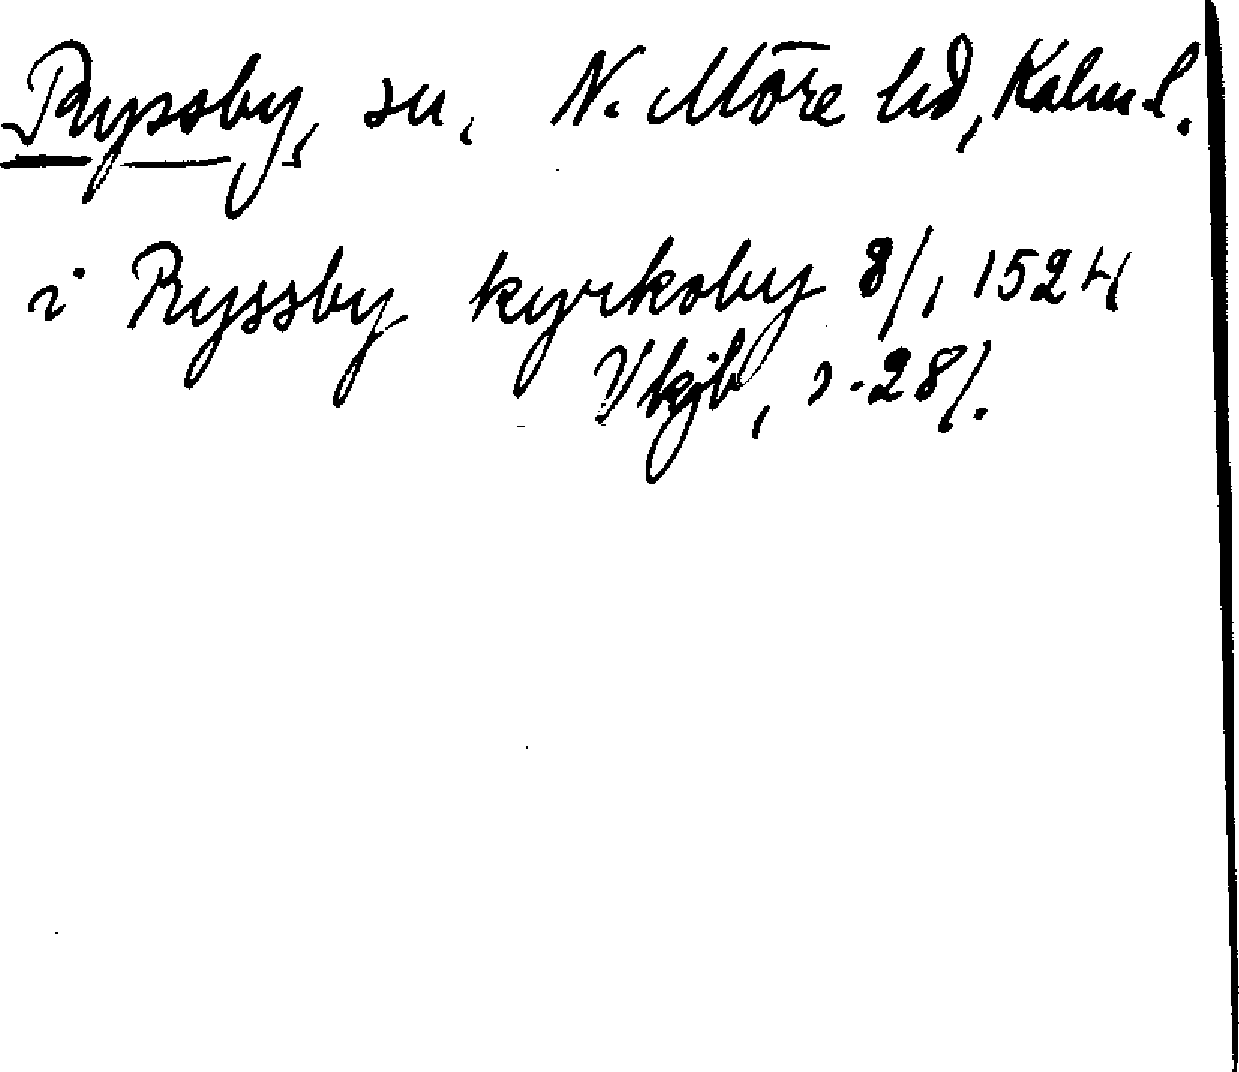 Ryssby, sn. N. Möre hd, Kalm. l.
i Ryssby kyrkoby 8/1 1524
Vkjb, s. 281.